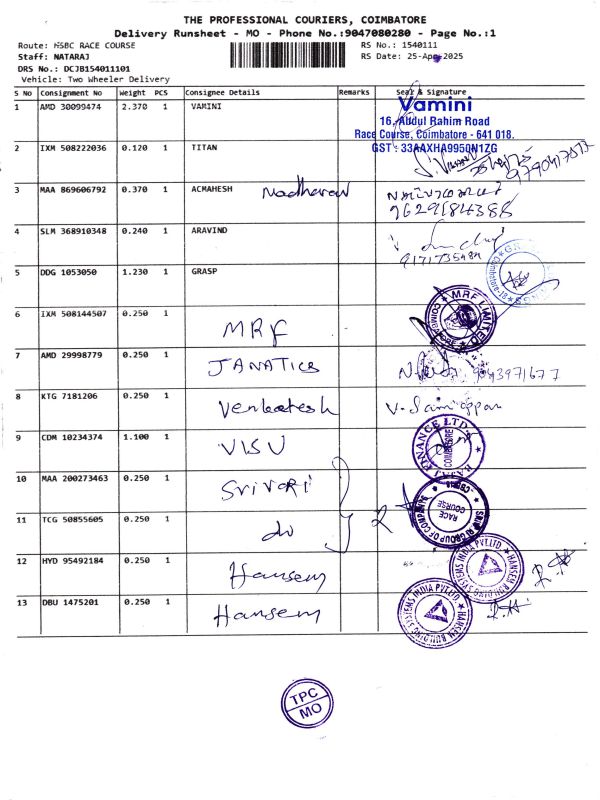 THE PROFESSIONAL COURIERS, COIMBATORE
Delivery Runsheet - MO - Phone No.:9047080280 - Page No.:1
Route: HSBC RACE COURSE
RS No.: 1540111
Staff: NATARAJ
RS Date: 25-Apr-2025
DRS No.: DCJB154011101
Vehicle: Two Wheeler Delivery
S No Consignment No Weight PCS Consignee Details Remarks Seal & Signature
1 AMD 30099474 2.370 1 VAMINI
Vamini
16, Abdul Rahim Road
Race Course, Coimbatore - 641 018.
GST : 33AAXHA9950N1ZG
2 IXM 508222036 0.120 1 TITAN
3 MAA 869606792 0.370 1 ACMAHESH Madhavan
9629184388
4 SLM 368910348 0.240 1 ARAVIND
5 DDG 1053050 1.230 1 GRASP
6 IXM 508144507 0.250 1 MRF
MRF LIMITED
COIMBATORE
7 AMD 29998779 0.250 1 JANATICS
8 KTG 7181206 0.250 1 Venkatesh
9 CDM 10234374 1.100 1 VISU
FINANCE LTD.
COIMBATORE
10 MAA 200273463 0.250 1 Srivari
GROUP OF COMPANIES
RACE COURSE
11 TCG 50855605 0.250 1 do
12 HYD 95492184 0.250 1 Hansem
HANSEM BUILDING SYSTEMS INDIA PVT LTD
13 DBU 1475201 0.250 1 Hansem
HANSEM BUILDING SYSTEMS INDIA PVT LTD
TPC
MO